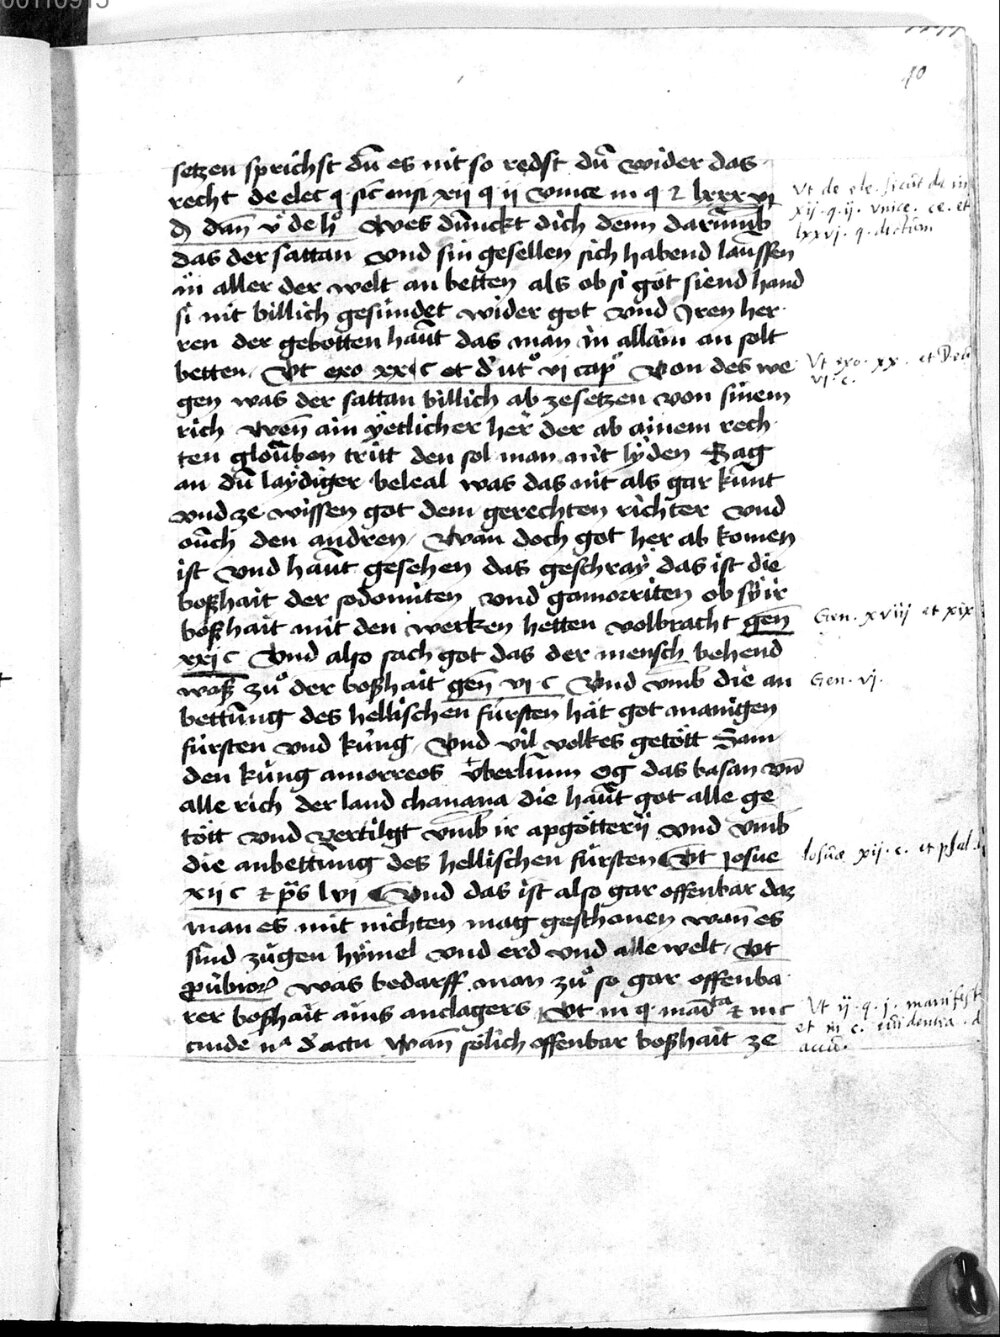 10
setzen sprichst dū es nit so redst dū wider das
recht de elec q sic cnsi xij q ij vnice in q 2 lxxxvj
d dan v de h Wes dūnckt dich denn darūmb
das der sattan vnd sin gesellen sich habend laussen
in aller der welt an betten als ob si got siend hand
si nit billich gesündet wider got vnd Jren her
ren der gebotten haūt das man in allain an solt
betten Vt exo xx c et d'ut vj cap Von des we
gen was der sattan billich ab zesetzen von sinem
rich wenn ain yetlicher her der ab ainem rech
ten gloūben tritt den sol man nit lyden Sag
an dū laydiger beleal was das nit als gar kūnt
vnd ze wissen got dem gerechten richter vnd
oūch den andren Wan doch got her ab komen
ist vnd haūt gesehen das geschray das ist die
boßhait der sodomiten vnd gamorriten ob sy ir
boßhait mit den werken hetten volbracht gen
xxj c Vnd also sach got das der mensch behend
waß zů der boßhait gen vj c Vnd vmb die an
bettūng des hellischen fürsten hāt got manigen
fürsten vnd kūng Vnd vil volkes getött Sam
den küng amorreos Vberlūnn og das basan vn
alle rich der land chanana die haūt got alle ge
tött vnd vertilgt vmb ir apgötterij vnd vmb
die anbettung des hellischen fürsten Vt josue
xij c et ps lvj Vnd das ist also gar offenbar daz
man es mit nichten mag geschonen wan es
sind zügen hymel vnd erd vnd alle welt Vt
was bedarff man zů so gar offenba
rer boßhait ains anclagers Vt in q manita et in c
euide n d' actu Wan sölich offenbar boßhait ze
Vt de ele. sicut de in
xij. q. ij. vnice. ce. et
lxxvj. q. dictum
Vt exo. xx. et Deu
vj. c.
Gen. xviij et xix
Gen. vj.
Josue xij. c. et psal.
Vt ij. q. j. manifest
et in c. euidentia. d
accu.